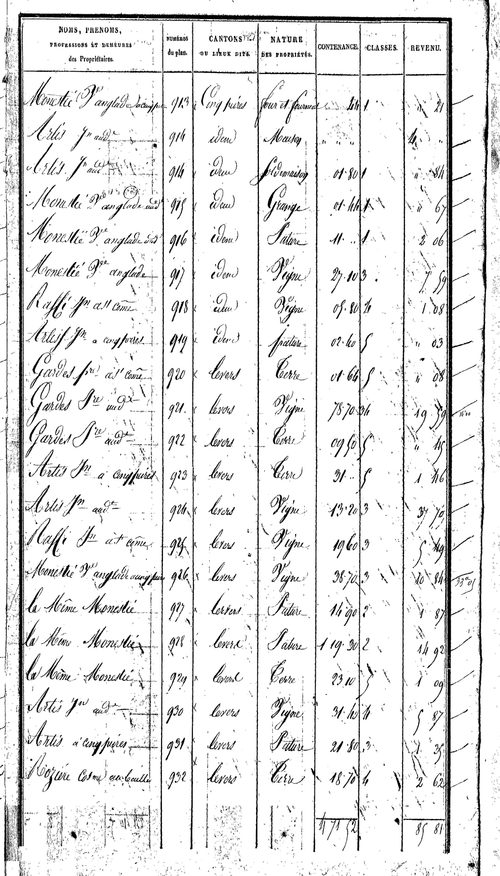 NOMS, PRENOMS, PROFESSIONS ET DEMEURES des Propriétaires. NUMÉROS du plan. CANTONS OU LIEUX DITS NATURE DES PROPRIÉTÉS. CONTENANCE. CLASSES. REVENU.
Monestié anglade 913 Cinqpeires four et 44 1 " 21
Artis Jn 914 idem Maison " " 4 "
Artis Jn 914 idem 01.80 1 " 84
Monestié anglade 915 idem Grange 01.44 1 " 67
Monestié anglade 916 idem Pature 11 .. 1 2 06
Monestié anglade 917 idem Vigne 27.10 3 7 59
Raffi Jn a st come 918 idem Vigne 05.80 4 1 08
Artis Jn a cinqpeires 919 idem pature 02.40 5 " 03
Gardes a st come 920 levers Terre 01.64 5 " 08
Gardes 921 levers Vigne 78.70 4 19 59
Gardes 922 levers Terre 09 50 5 " 45
Artis Jn a cinqpeires 923 levers Terre 31 .. 5 1 46
Artis Jn 924 levers Vigne 13.20 3 3 70
Raffi Jn a st come 925 levers Vigne 19 60 3 5 49
Monestié anglade 926 levers Vigne 38.70 3 10 84
la Même Monestié 927 levers Pature 14.90 2 1 87
la Même Monestié 928 levers Pature 1 19.30 2 14 92
la Même Monestié 929 levers Terre 23.10 5 1 09
Artis Jn 930 levers Vigne 31.40 4 5 87
Artis a cinqpeires 931 levers Pature 21.80 3 1 35
Rozière Cosme 932 levers Terre 18.70 4 2 62
4 71 52 85 81